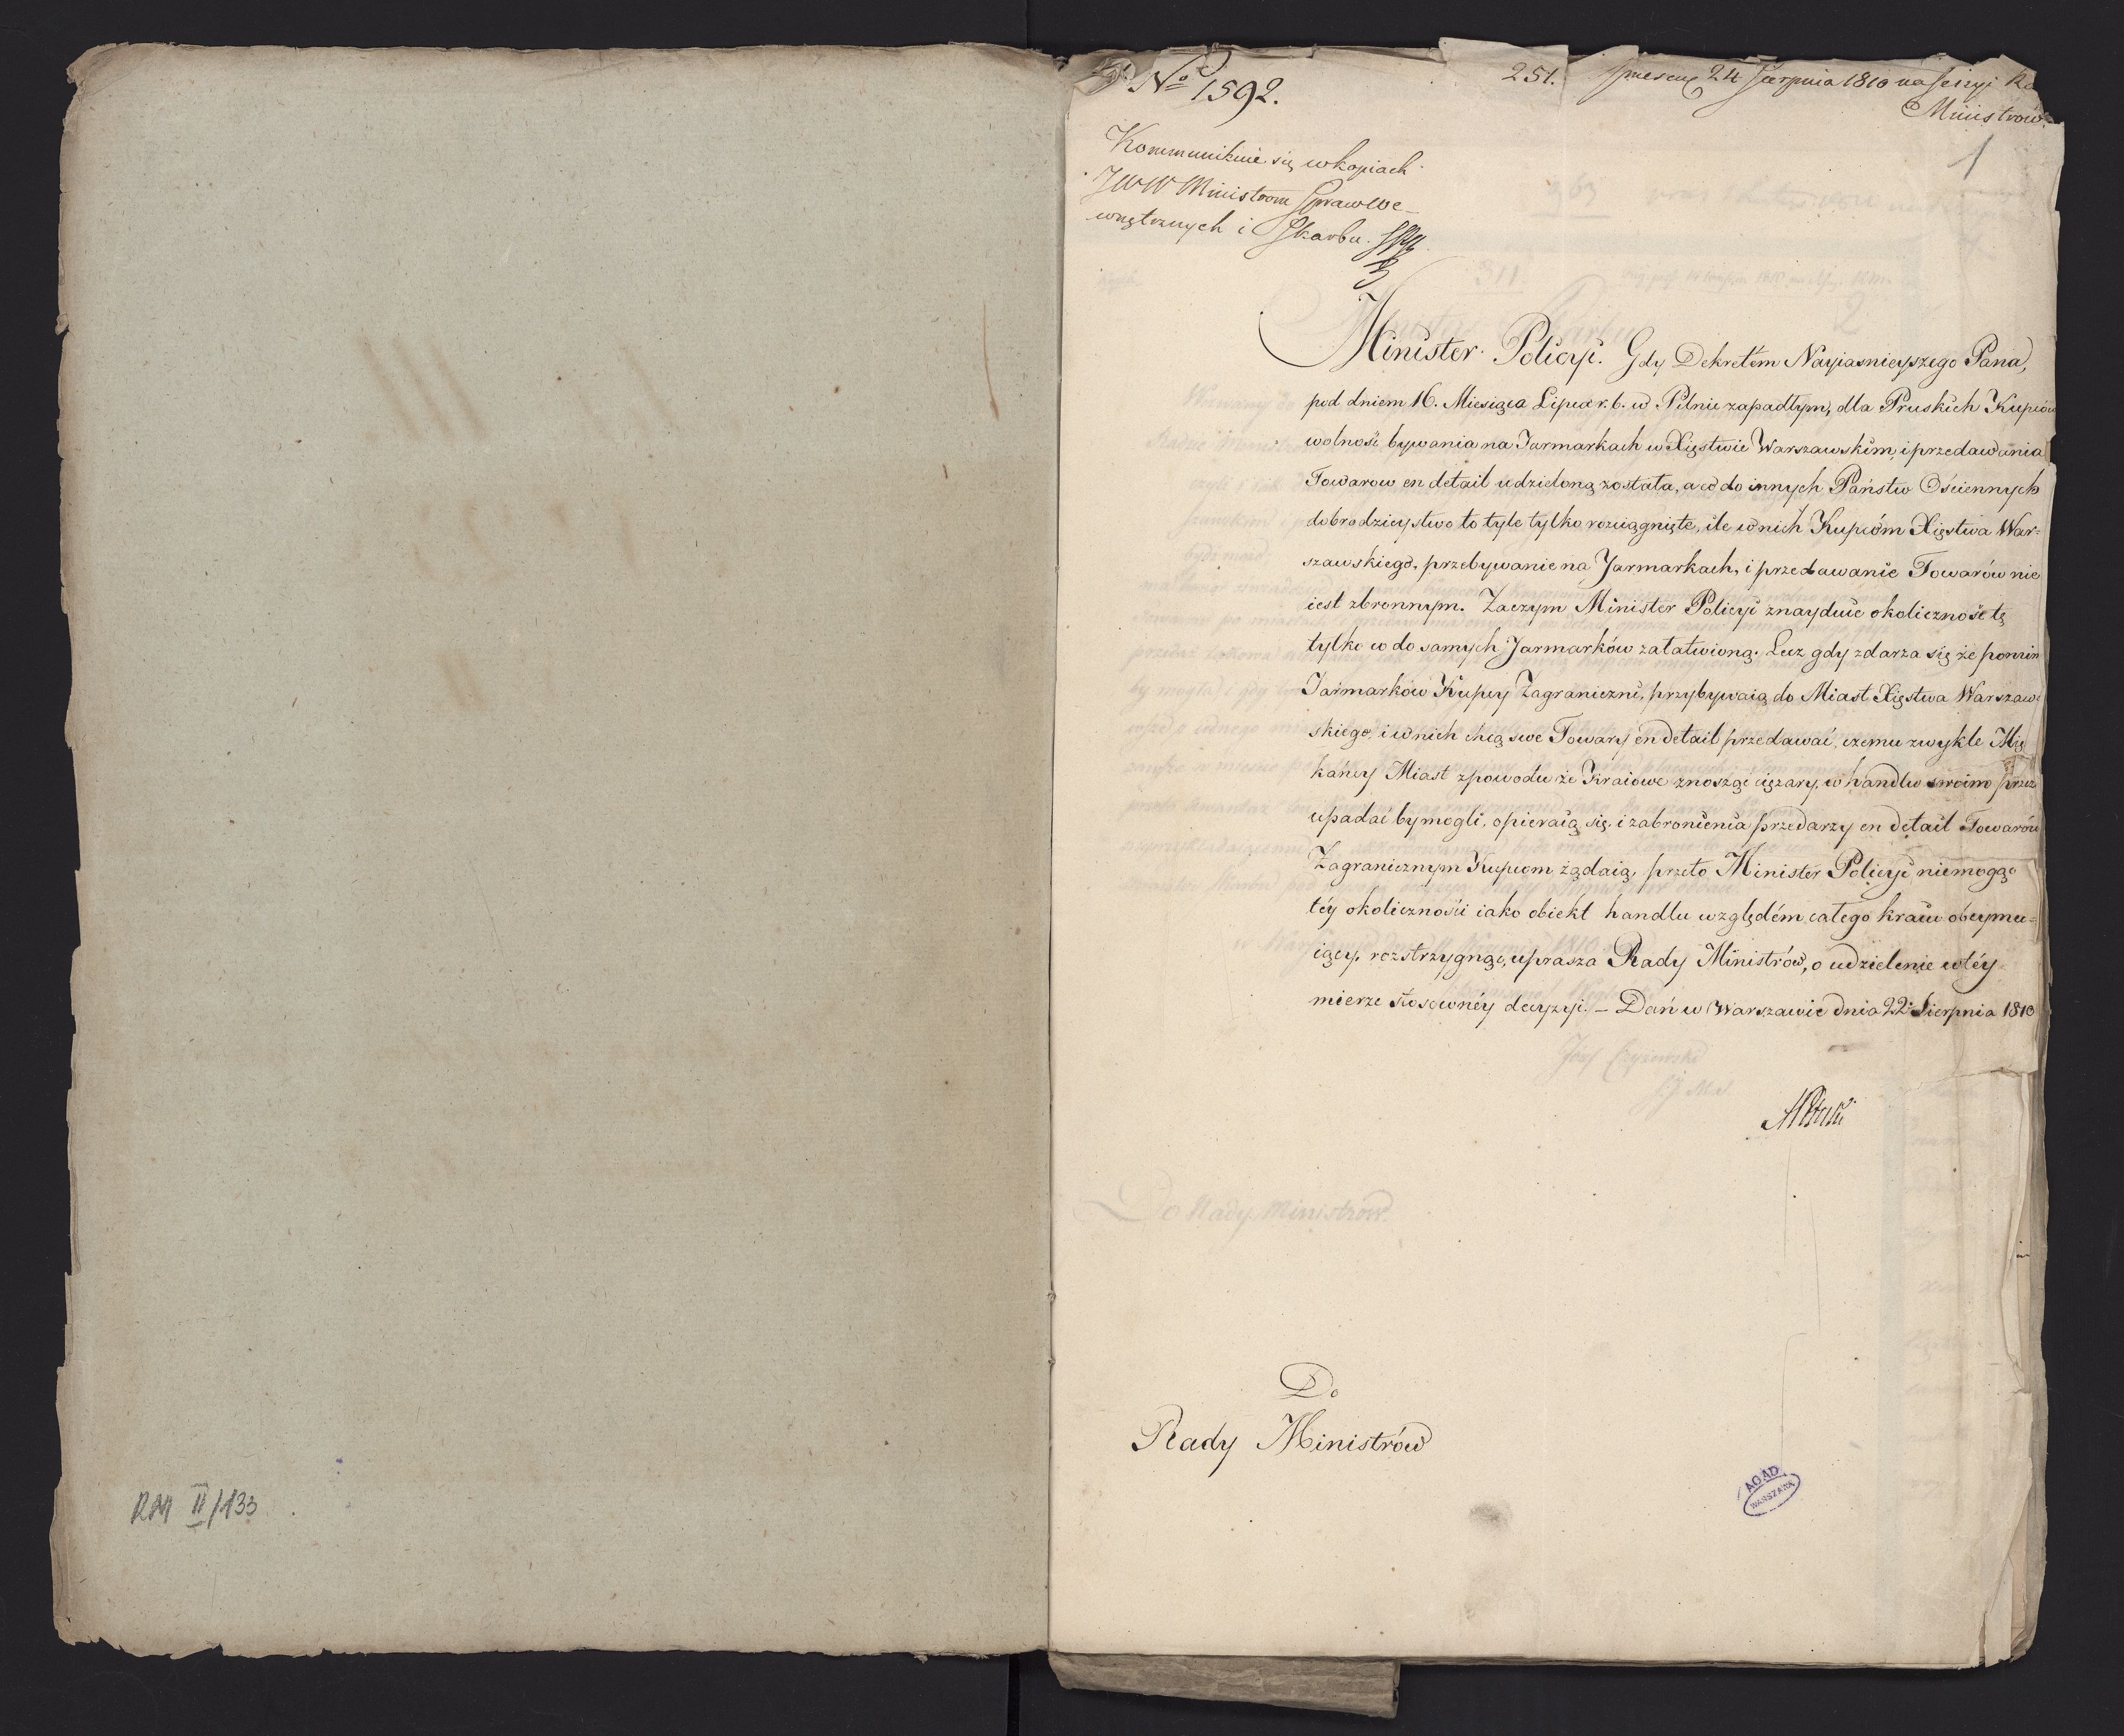 RM II/133
No 1592.
251.
24 Sierpnia 1810 na Sessyi
Ministrów
1
Kommunikuie się w kopiach
JWW Ministrom Spraw We-
wnętrznych i Skarbu.
Minister Policyi. Gdy Dekretem Nayiasnieyszego Pana,
pod dniem 16. Miesiąca Lipca r. b. w Pilnie zapadłym, dla Pruskich Kupców
wolność bywania na Jarmarkach w Xięstwie Warszawskim, i przedawania
Towarow en detail udzieloną została, a co do innych Państw Ościennych
dobrodzieystwo to tyle tylko rozciągnięte, ile w nich Kupcóm Xięstwa War-
szawskiego, przebywanie na Jarmarkach, i przedawanie Towarów nie
iest zbronnym. Zaczym Minister Policyi znayduie okoliczność tę
tylko co do samych Jarmarków załatwioną. Lecz gdy zdarza się że pomim
Jarmarków Kupcy Zagraniczni, przybywaią do Miast Xięstwa Warszaw-
skiego, i w nich chcą swe Towary en detail przedawać, czemu zwykle Mię
kańcy Miast z powodu że Kraiowe znosząc ciężary, w handlu swoim przez
upadać by mogli, opieraią się, i zabronienia przedarzy en detail Towarów
Zagranicznym Kupcom żądaią, przeto Minister Policyi niemogąc
téy okoliczności iako obiekt handlu względem całego kraiu obeymu-
iącey, rozstrzygnąć, uprasza Rady Ministrów, o udzielenie w téy
mierze stosownéy decyzyi. – Dań w Warszawie dnia 22 Sierpnia 1810
Do
Rady Ministrów
Do Rady Ministrow
AGAD
WARSZAWA